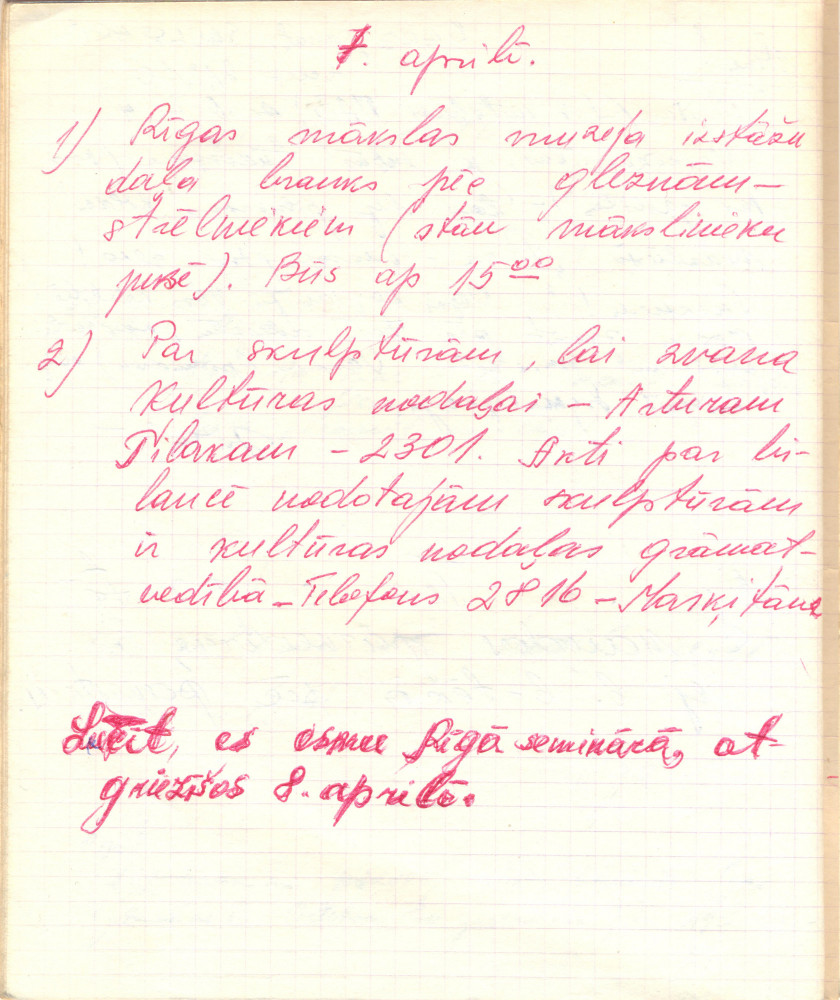 7. aprīlī.
1) Rīgas mākslas muzeja izstāžu
daļa brauks pēc gleznām-
strēlniekiem (stāv mākslinieku
pusē). Būs ap 15⁰⁰
2) Par skulptūrām, lai zvana
Kultūras nodaļai - Arturam
Pīlakam - 2301. Akti par bi-
lancē nodotajām skulptūrām
ir kultūras nodaļas grāmat-
vedībā - Telefons 2816 - Marķitāna
es esmu Rīgā seminārā, at-
griezīšos 8. aprīlī.